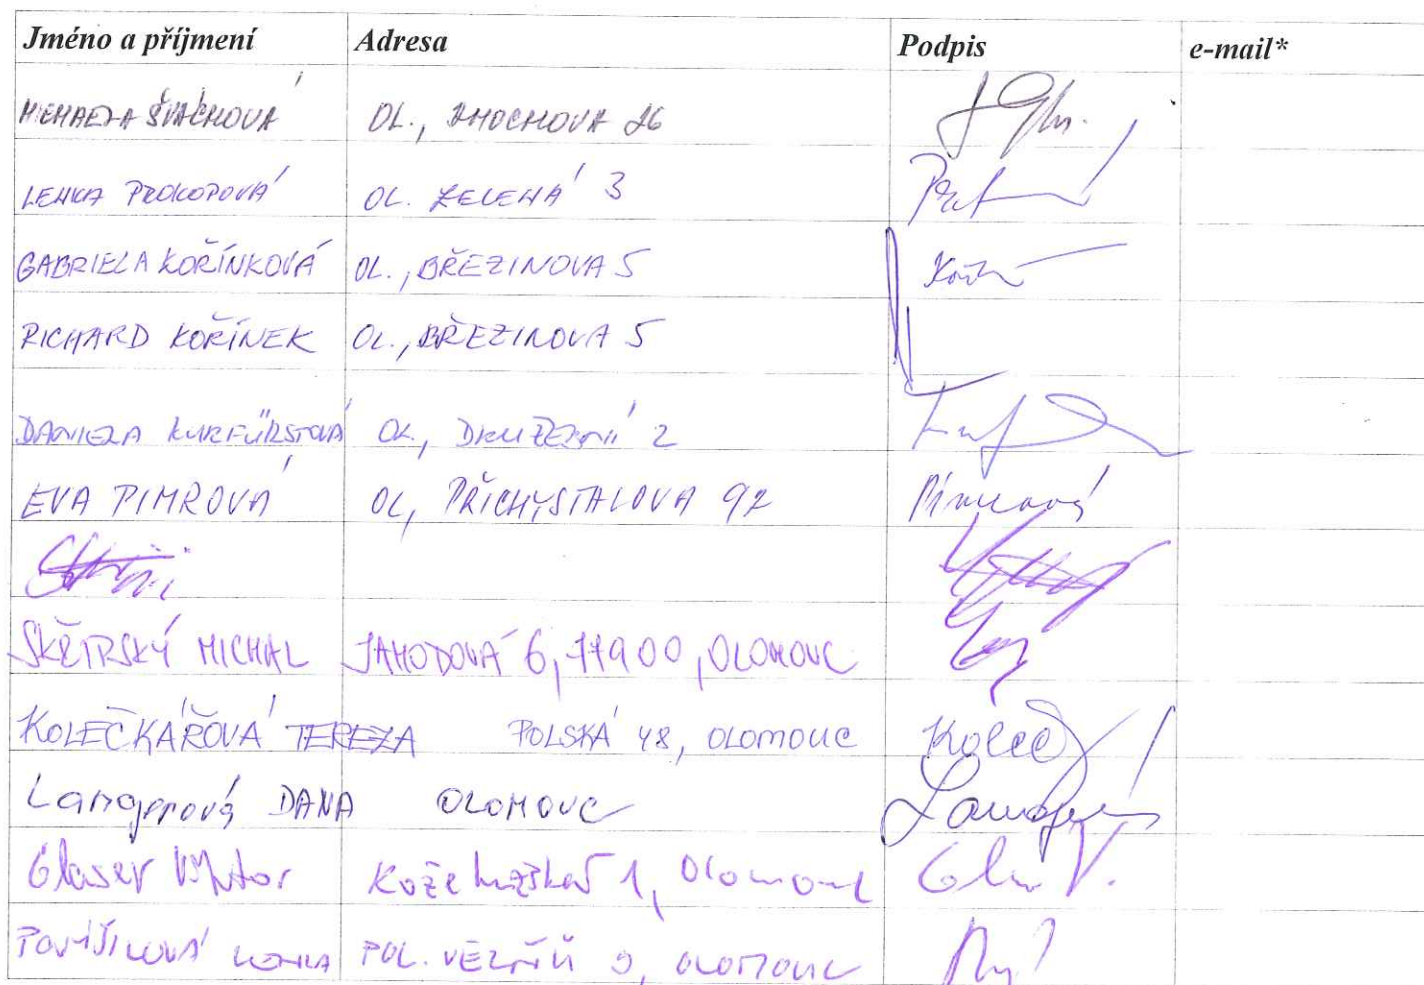 Jméno a příjmení Adresa Podpis e-mail*
MICHAELA ŠVÁCHOVÁ OL., 26
LENKA PROKOPOVÁ OL. ZELENÁ 3
GABRIELA KOŘÍNKOVÁ OL., BŘEZINOVA 5
RICHARD KOŘÍNEK OL., BŘEZINOVA 5
DANIELA KURFÜRSTOVÁ OL., DRUŽEBNÍ 2
EVA PIMROVÁ OL, PŘICHYSTALOVA 92 Pimrová
MICHAL JAHODOVÁ 6, 77900, OLOMOUC
KOLEČKÁŘOVÁ TEREZA POLSKÁ 48, OLOMOUC
Langerová DANA OLOMOUC
Glaser Viktor Koželužská 1, Olomouc
LENKA POL. VĚZŇŮ 9, OLOMOUC